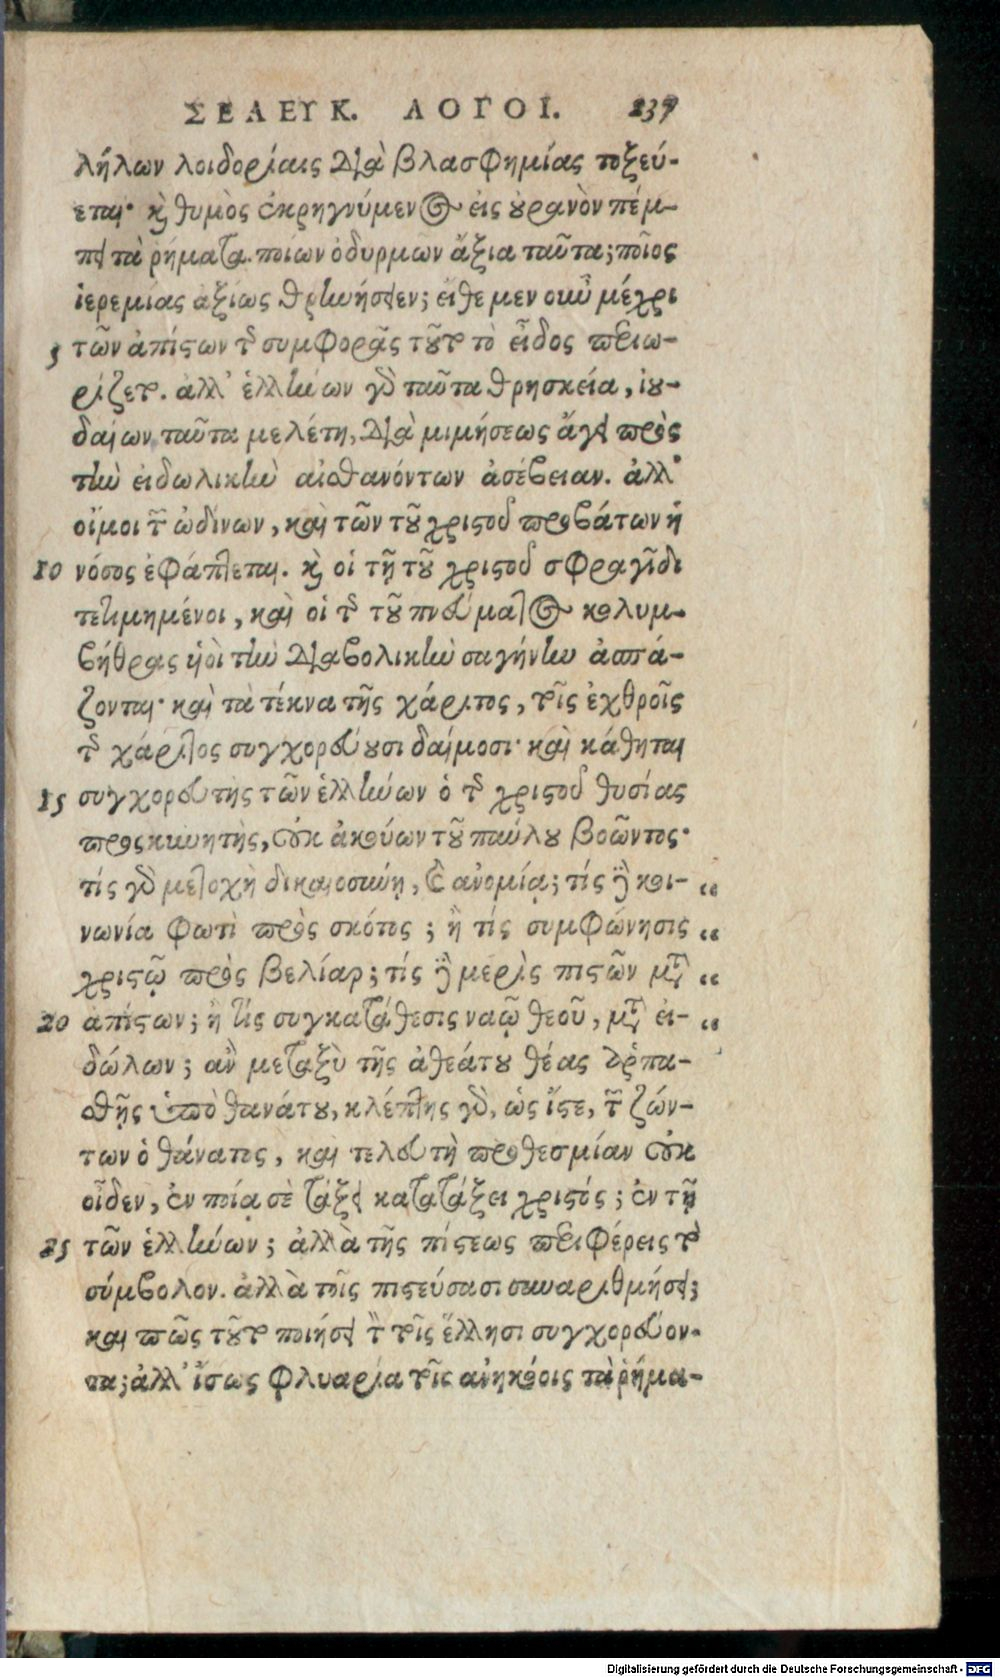 ΣΕΛΕΥΚ. ΛΟΓΟΙ. 237
λήλων λοιδορίαις διὰ βλασφημίας τοξεύ-
εται· καὶ θυμὸς ἐκρηγνύμενος εἰς οὐρανὸν πέμ-
πει τὰ ρήματα. ποιων ὀδυρμων ἄξια ταῦτα; ποῖος
ἱερεμίας αξίως θρηνήσειεν; εἴθε μεν οιῶ μέχρι
5 τῶν ἀπίστων τῆς συμφορᾶς τοῦτο τὸ εἶδος περιω-
ρίζετο. ἀλλ' ἑλλήνων γὰρ ταῦτα θρησκεία, ἰου-
δαίων ταῦτα μελέτη, διὰ μιμήσεως ἄγει πρὸς
τὴν εἰδωλικὴν αἰσθανόντων ἀσέβειαν. ἀλλ'
οἴμοι τῶν ὠδίνων, καὶ τῶν τοῦ χριστοῦ προβάτων ἡ
10 νόσος ἐφάπτεται. καὶ οἱ τῇ τοῦ χριστοῦ σφραγῖδι
τετιμημένοι, καὶ οἱ τῆς τοῦ πνεύματος κολυμ-
βήθρας υἱοὶ τὴν διαβολικὴν σαγήνην ἀσπά-
ζονται· καὶ τὰ τέκνα τῆς χάριτος, τοῖς ἐχθροῖς
τῆς χάριτος συγχορεύουσι δαίμοσι· καὶ κάθηται
15 συγχορευτὴς τῶν ἑλλήνων ὁ τῆς χριστοῦ θυσίας
προσκυνητὴς, οὐκ ἀκούων τοῦ παύλου βοῶντος·
τίς γὰρ μετοχὴ δικαιοσύνῃ, καὶ ανομίᾳ; τίς δὲ κοι- “
νωνία φωτὶ πρὸς σκότος; ἢ τίς συμφώνησις “
χριστῷ πρὸς βελίαρ; τίς δὲ μερὶς πιστῶν μετὰ “
20 απίστων; ἢ τίς συγκατάθεσις ναῷ θεοῦ, μετὰ εἰ- “
δώλων; αν δὲ μεταξὺ τῆς ἀθεάτου θέας ἁρπα-
σθῇς ὑπὸ θανάτου, κλέπτης γὰρ, ὡς ἴστε, τῶν ζών-
των ὁ θάνατος, καὶ τελευτὴ προθεσμίαν οὐκ
οἶδεν, ἐν ποίᾳ σὲ τάξει κατατάξει χριστός; ἐν τῇ
25 τῶν ἑλλήνων; ἀλλὰ τῆς πίστεως περιφέρεις τὸ
σύμβολον. ἀλλὰ τοῖς πιστεύσασι συναριθμήσει;
καὶ πῶς τοῦτο ποιήσει τὸν τοῖς ἕλλησι συγχορεύον-
τα; ἀλλ' ἴσως φλυαρία τοῖς ανηκόοις τὰ ῥήμα-
Digitalisierung gefördert durch die Deutsche Forschungsgemeinschaft - DFG